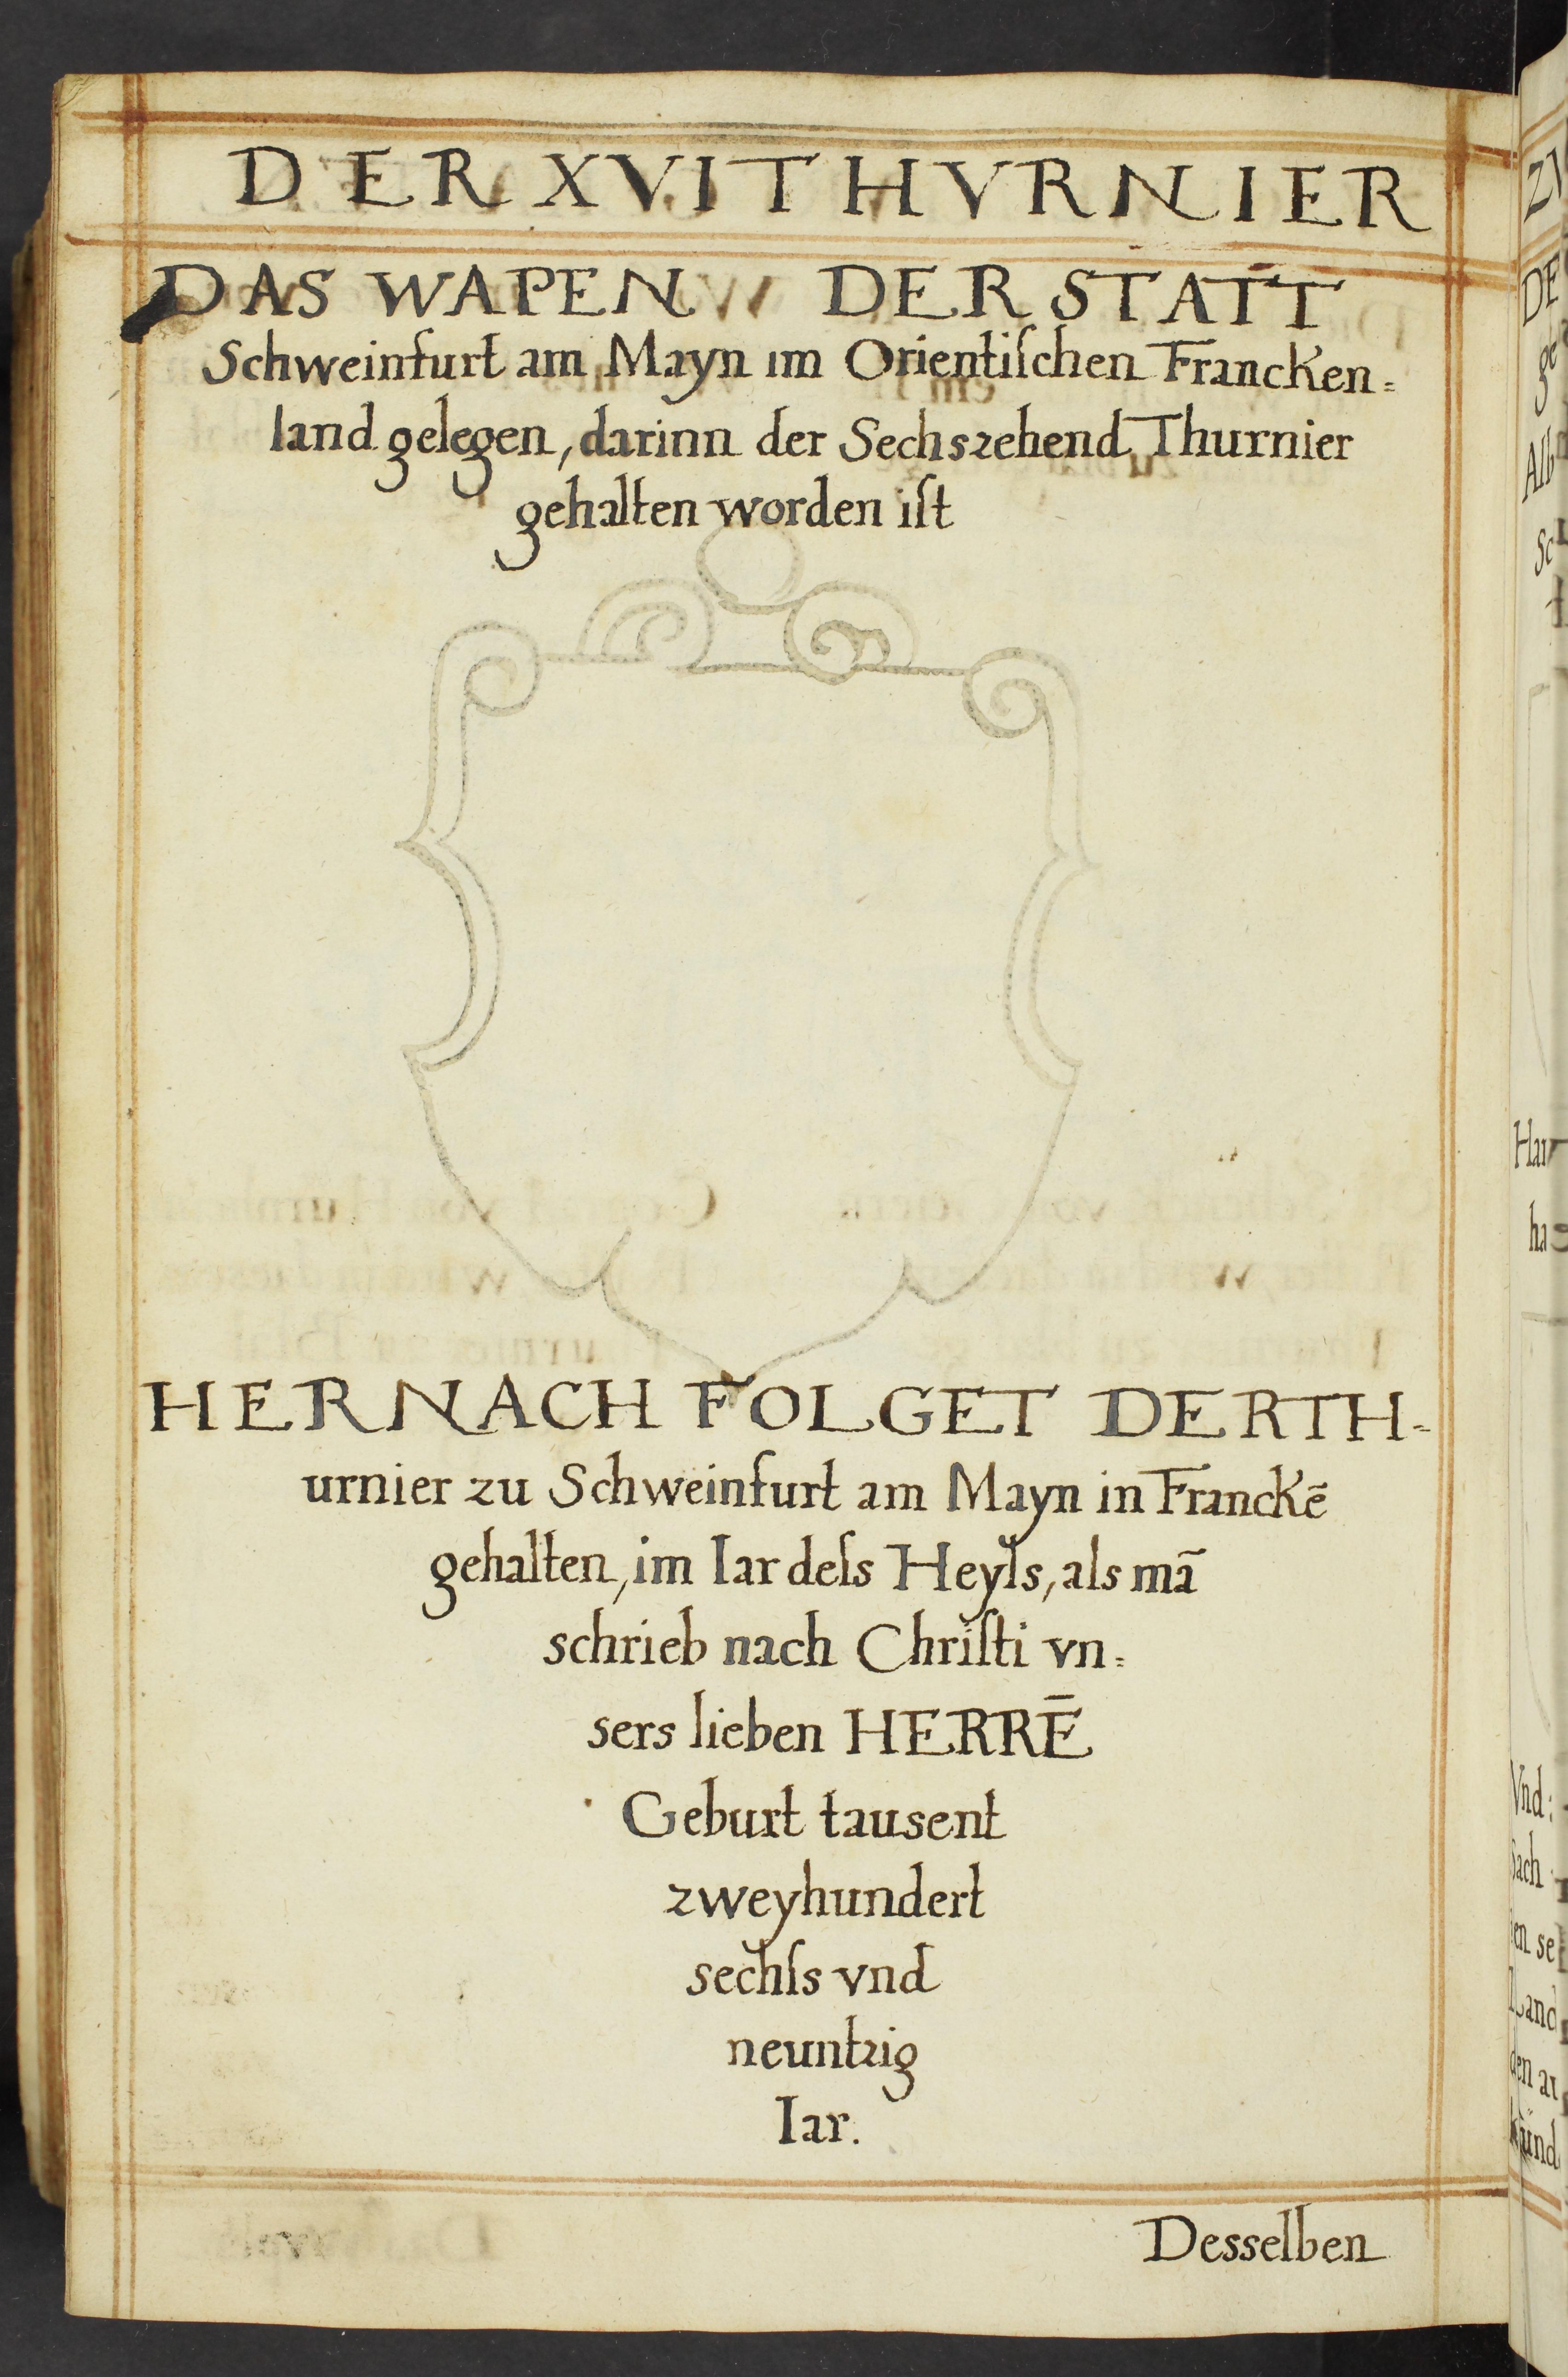 DER XVI THVRNIER
DAS WAPEN DER STATT
Schweinfurt am Mayn im Orientiſchen Francken=
land gelegen, darinn der Sechszehend Thurnier
gehalten worden iſt
HERNACH FOLGET DER TH=
urnier zu Schweinfurt am Mayn in Franckē
gehalten, im Iar deſs Heyls, als mā
schrieb nach Chriſti vn=
sers lieben HERRĒ
Geburt tausent
zweyhundert
sechſs vnd
neuntzig
Iar.
Desselben